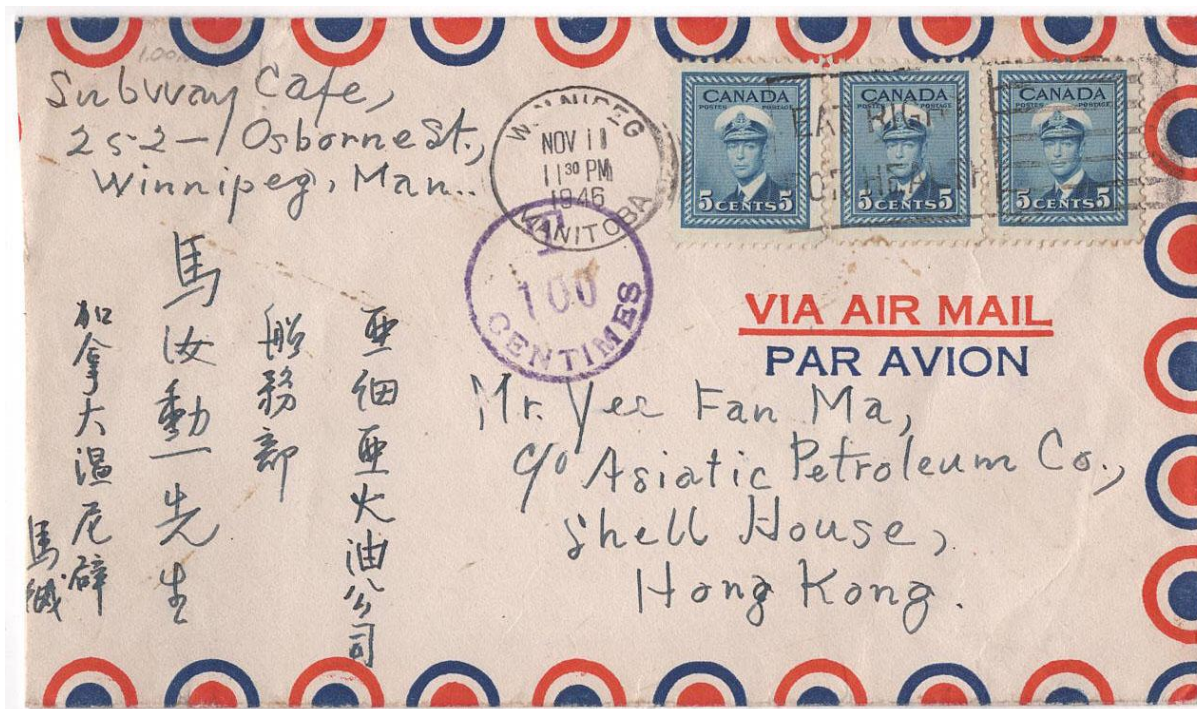 Subway Cafe,
252-1 Osborne St.,
Winnipeg, Man..
WINNIPEG
NOV 11
11 30 PM
1946
MANITOBA
CANADA
POSTES POSTAGE
5 CENTS 5
CANADA
POSTES POSTAGE
5 CENTS 5
CANADA
POSTES POSTAGE
5 CENTS 5
EAT RIGH
HEA
T
100
CENTIMES
VIA AIR MAIL
PAR AVION
Mr. Yee Fan Ma,
c/o Asiatic Petroleum Co.,
Shell House,
Hong Kong.
亜細亜火油公司
船務部
馬汝勳先生
加拿大温尼辟
馬